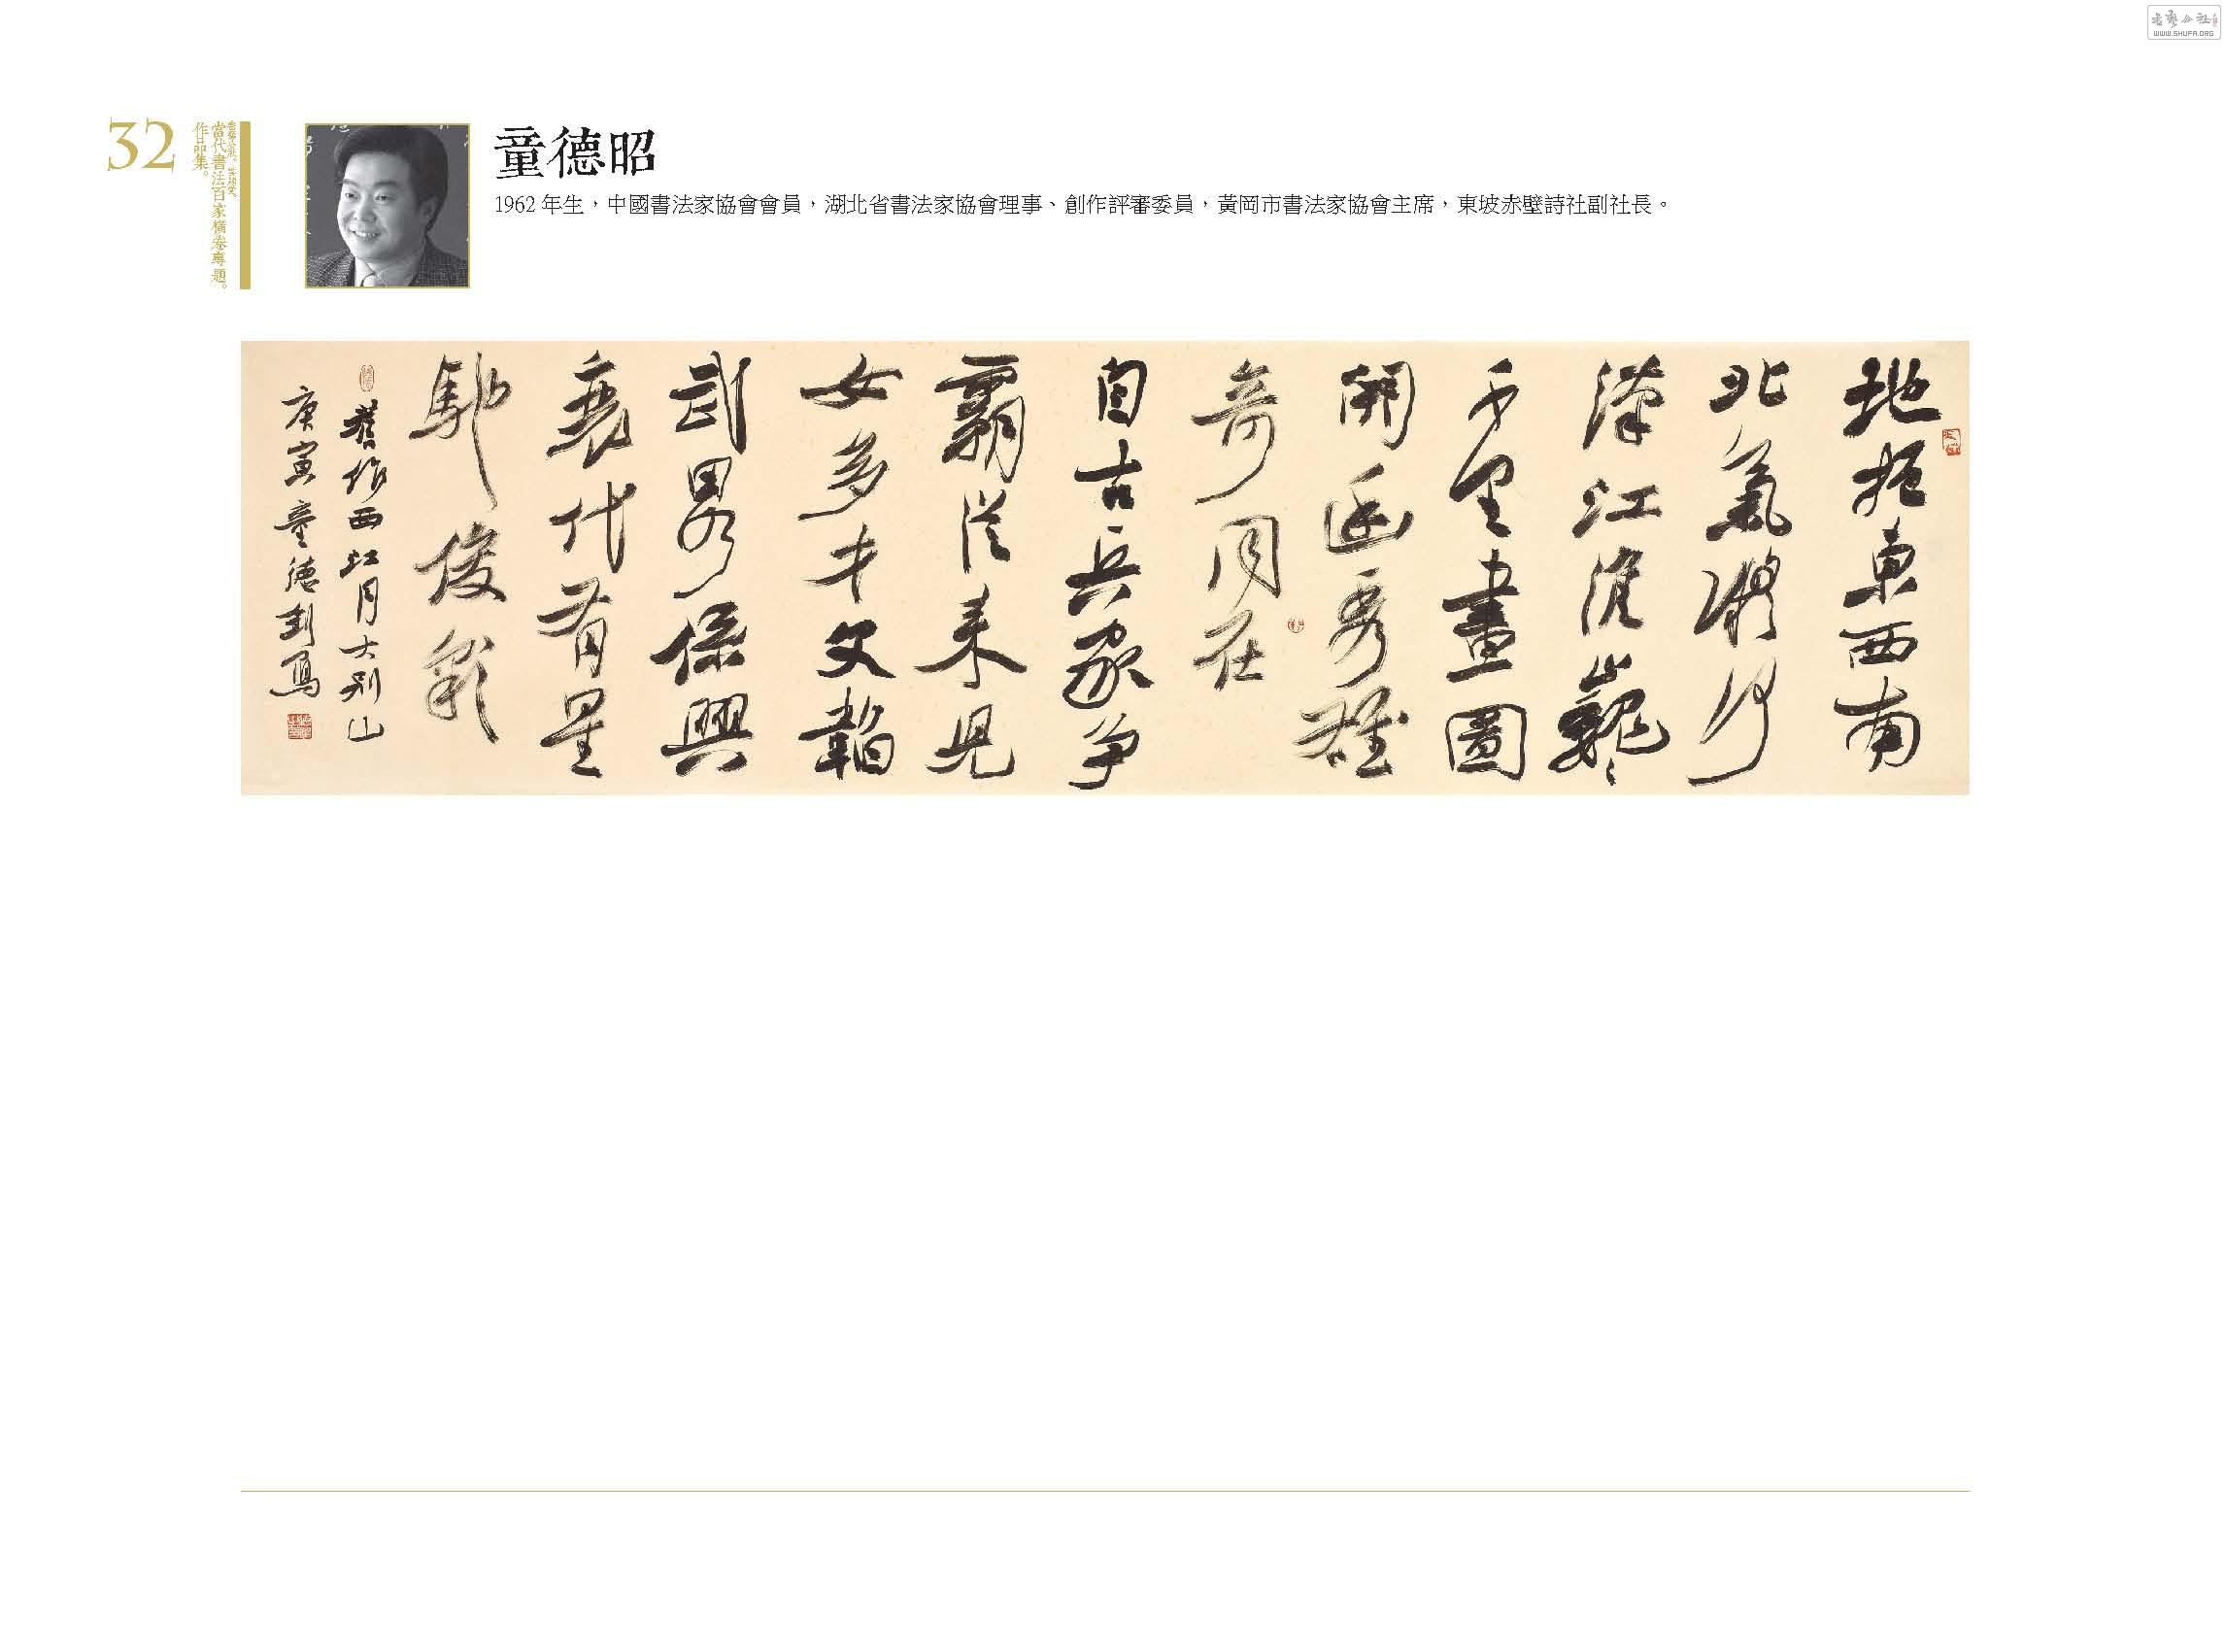 32
當代書法百家橫卷專題。
作品集。
童德昭
1962 年生，中國書法家協會會員，湖北省書法家協會理事、創作評審委員，黃岡市書法家協會主席，東坡赤壁詩社副社長。
地扼東西南
北氣凝
漢江淮巍巍
千里畫圖
開函秀雄
奇同在
自古兵家爭
霸從來兒
女多才文韜
武略係興
衰代有星
馳俊彩
舊作西江月大別山
庚寅童德釗寫
WWW.SHUFA.ORG